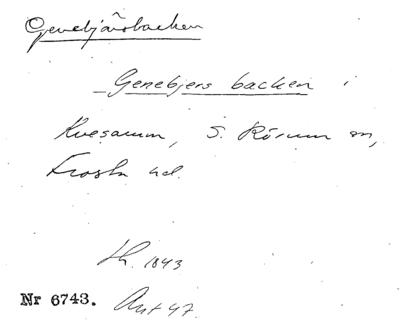 Genebjärsbacken
Genebjers backen i
Kvesarum, S. Rörum sn,
Frosta hd.
Lh. 1843
Nr 6743. Ant 47